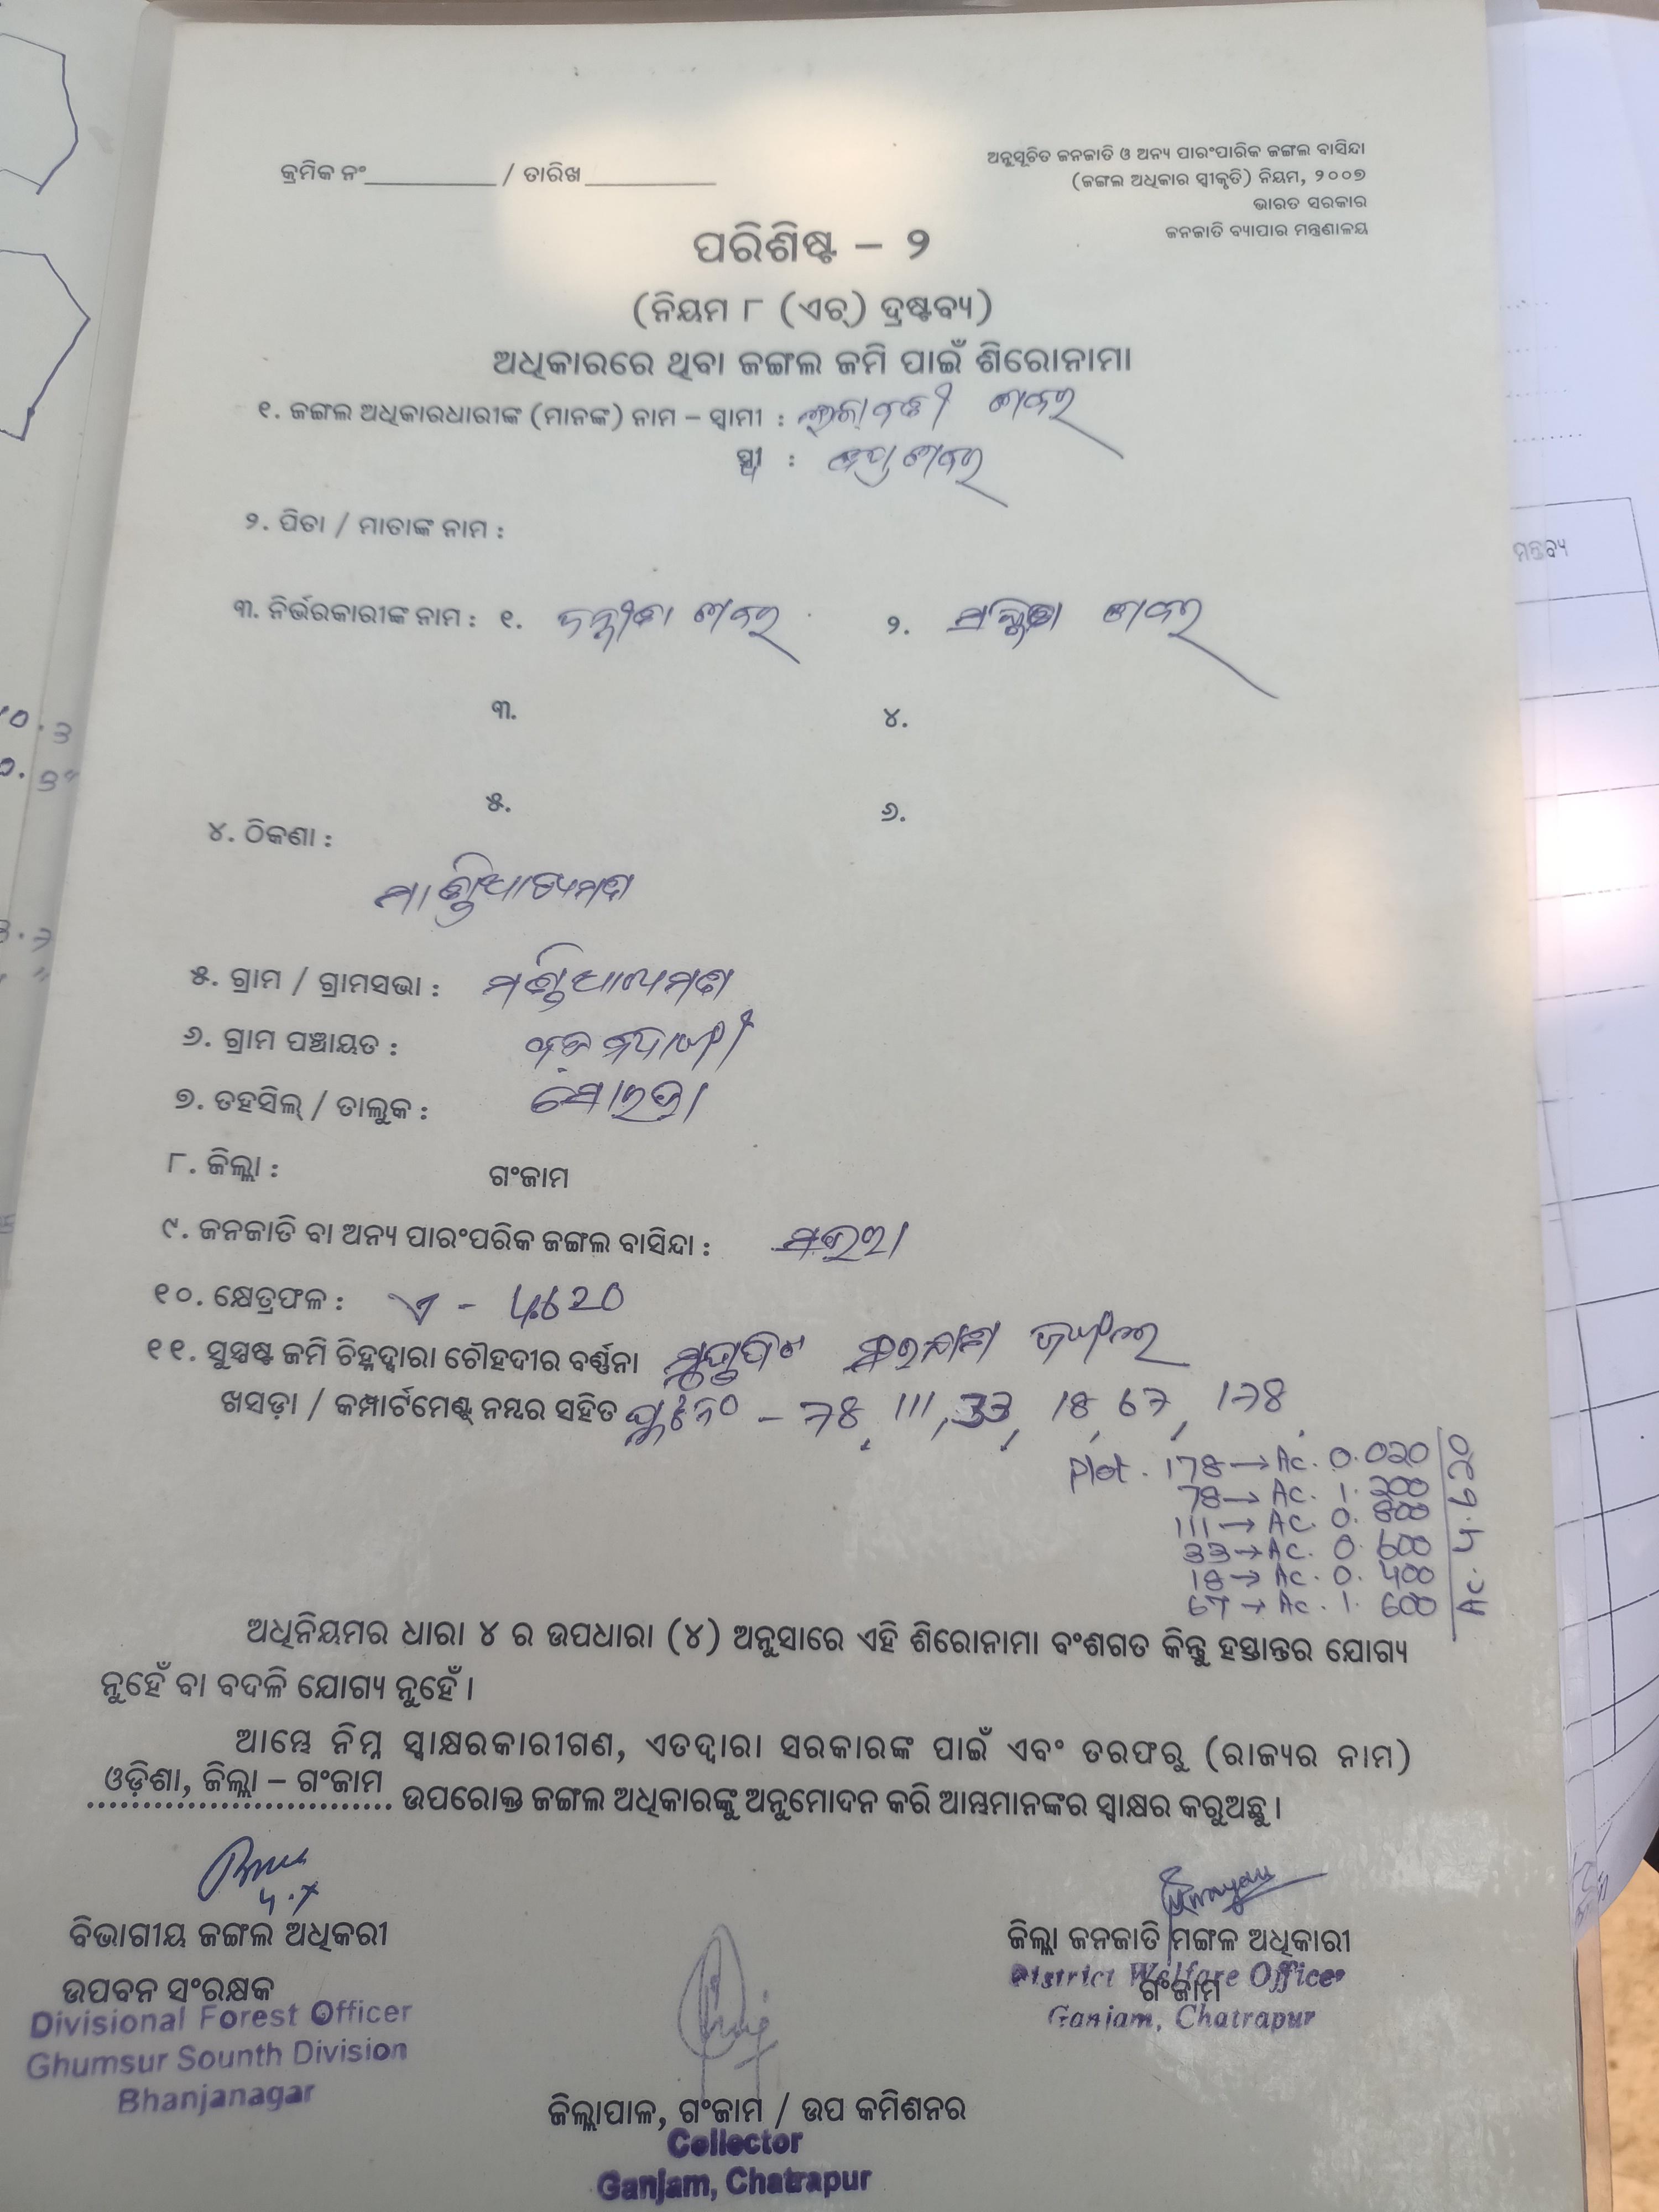 କ୍ରମିକ ନଂ__________ / ତାରିଖ__________
ଅନୁସୂଚିତ ଜନଜାତି ଓ ଅନ୍ୟ ପାରଂପାରିକ ଜଙ୍ଗଲ ବାସିନ୍ଦା
(ଜଙ୍ଗଲ ଅଧିକାର ସ୍ୱୀକୃତି) ନିୟମ, ୨୦୦୭
ଭାରତ ସରକାର
ଜନଜାତି ବ୍ୟାପାର ମନ୍ତ୍ରଣାଳୟ
ପରିଶିଷ୍ଟ – ୨
(ନିୟମ ୮ (ଏଚ୍) ଦ୍ରଷ୍ଟବ୍ୟ)
ଅଧିକାରରେ ଥିବା ଜଙ୍ଗଲ ଜମି ପାଇଁ ଶିରୋନାମା
୧. ଜଙ୍ଗଲ ଅଧିକାରଧାରୀଙ୍କ (ମାନଙ୍କ) ନାମ – ସ୍ୱାମୀ : ଶବର
ସ୍ତ୍ରୀ : ଶବର
୨. ପିତା / ମାତାଙ୍କ ନାମ :
୩. ନିର୍ଭରକାରୀଙ୍କ ନାମ : ୧. ଶବର ୨. ଶବର
୩. ୪.
୫. ୬.
୪. ଠିକଣା :
୫. ଗ୍ରାମ / ଗ୍ରାମସଭା :
୬. ଗ୍ରାମ ପଞ୍ଚାୟତ :
୭. ତହସିଲ୍ / ତାଲୁକ : ସୋରଡା
୮. ଜିଲ୍ଲା : ଗଂଜାମ
୯. ଜନଜାତି ବା ଅନ୍ୟ ପାରଂପରିକ ଜଙ୍ଗଲ ବାସିନ୍ଦା :
୧୦. କ୍ଷେତ୍ରଫଳ : ଏ – 4.620
୧୧. ସୁସ୍ପଷ୍ଟ ଜମି ଚିହ୍ନଦ୍ୱାରା ଚୌହଦୀର ବର୍ଣ୍ଣନା
ଖସଡ଼ା / କମ୍ପାର୍ଟମେଣ୍ଟ୍ ନମ୍ବର ସହିତ – 78, 111, 33, 18, 67, 178
Plot. 178 → Ac. 0.020
78 → Ac. 1.200
111 → Ac. 0.800
33 → Ac. 0.600
18 → Ac. 0.400
67 → Ac. 1.600
Ac. 4.620
ଅଧିନିୟମର ଧାରା ୪ ର ଉପଧାରା (୪) ଅନୁସାରେ ଏହି ଶିରୋନାମା ବଂଶଗତ କିନ୍ତୁ ହସ୍ତାନ୍ତର ଯୋଗ୍ୟ
ନୁହେଁ ବା ବଦଳି ଯୋଗ୍ୟ ନୁହେଁ ।
ଆମ୍ଭେ ନିମ୍ନ ସ୍ୱାକ୍ଷରକାରୀଗଣ, ଏତଦ୍ୱାରା ସରକାରଙ୍କ ପାଇଁ ଏବଂ ତରଫରୁ (ରାଜ୍ୟର ନାମ)
ଓଡ଼ିଶା, ଜିଲ୍ଲା – ଗଂଜାମ ଉପରୋକ୍ତ ଜଙ୍ଗଲ ଅଧିକାରଙ୍କୁ ଅନୁମୋଦନ କରି ଆମ୍ଭମାନଙ୍କର ସ୍ୱାକ୍ଷର କରୁଅଛୁ ।
ବିଭାଗୀୟ ଜଙ୍ଗଲ ଅଧିକରୀ
ଉପବନ ସଂରକ୍ଷକ
Divisional Forest Officer
Ghumsur Sounth Division
Bhanjanagar
ଜିଲ୍ଲା ଜନଜାତି ମଙ୍ଗଳ ଅଧିକାରୀ
ଗଂଜାମ
District Welfare Officer
Ganjam, Chatrapur
ଜିଲ୍ଲାପାଳ, ଗଂଜାମ / ଉପ କମିଶନର
Collector
Ganjam, Chatrapur
ମନ୍ତବ୍ୟ